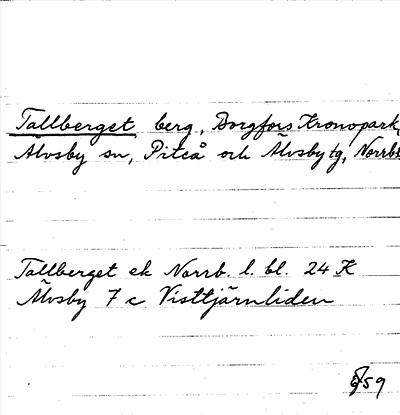 Tallberget berg, Borgfors Kronopark,
Älvsby sn, Piteå och Älvsby tg, Norrb
Tallberget ek Norrb. l. bl. 24 K
Älvsby 7 c Visttjärnliden
59